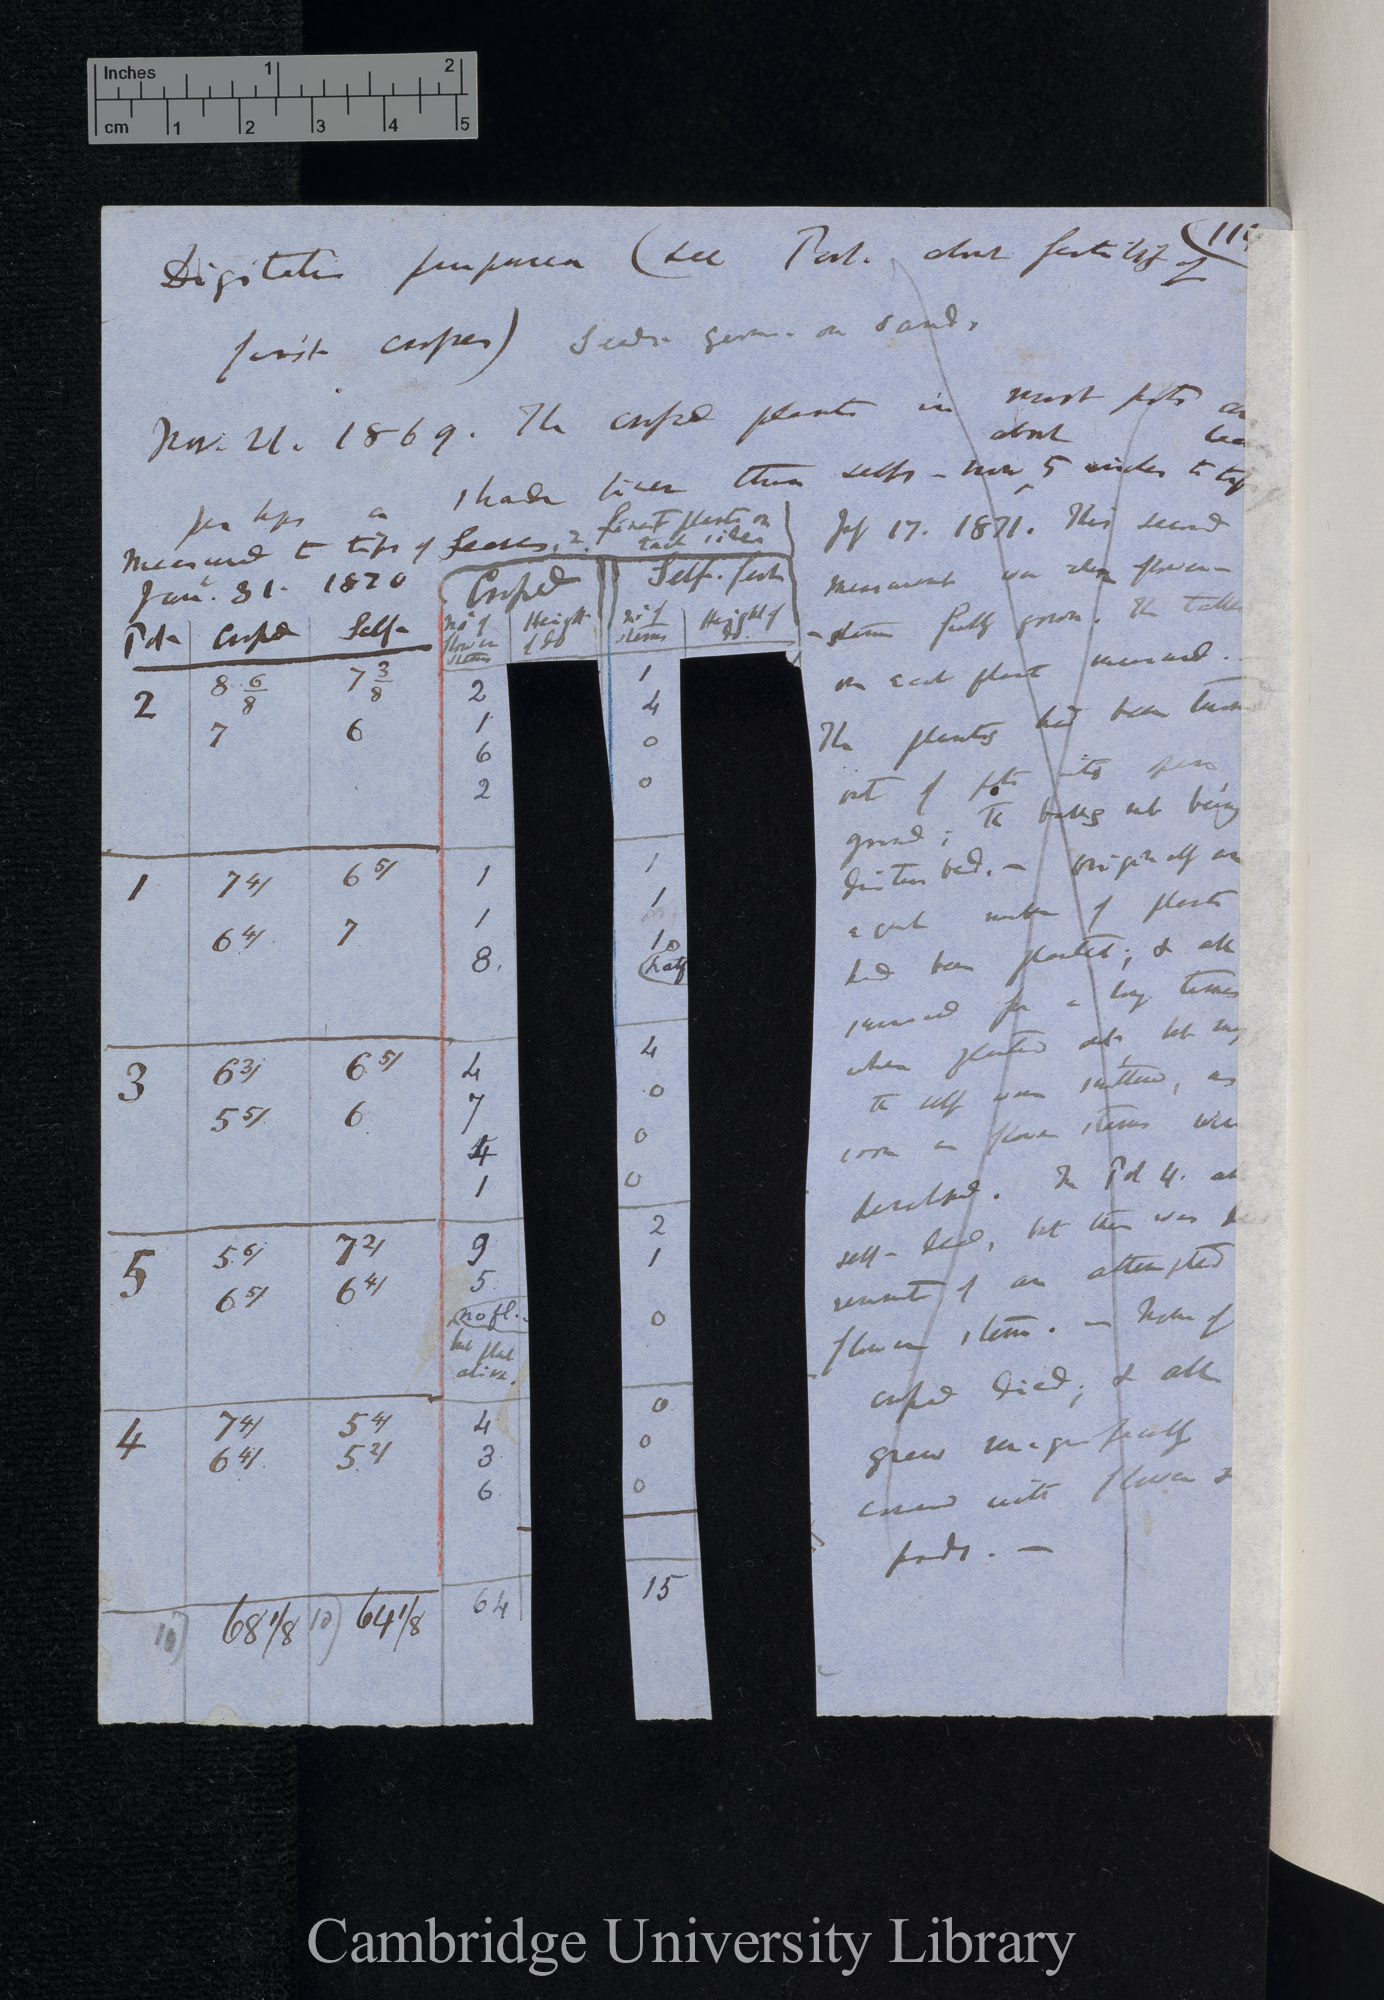 Inches 1 2
cm 1 2 3 4 5
(11
Digitalis purpurea (see Part. about fertility of
first crosses) Seeds germ. on sand.
Nov. 21. 1869. The crossed plants in most pots are
about
perhaps a shade finer than selfs — now 5 inches to tip
Measured to tips of leaves, 2 finest plants on
each sides
Jan. 31. 1870
Pot Crossed Self-
Crossed Self-fert
No of flower stems Height of do No of stems Height of do
2 8 6/8 7 3/8 2 1
7 6 1 4
6 0
2 0
1 7 4/ 6 5/ 1 1
6 4/ 7 1 1
8. 10
(half
3 6 3/ 6 5/ 4 4
5 5/ 6 7 0
4 0
1 0
5 5 6/ 7 2/ 9 2
6 5/ 6 4/ 5 1
no fl. 0
but plant
alive.
4 7 4/ 5 4/ 4 0
6 4/ 5 2/ 3 0
6 0
10) 68 1/8 10) 64 1/8 64 15
July 17. 1871. This second
measurement was when flower-
-stems fully grown. The tallest
on each plant measured.
The plants had been turned
out of pots into open
ground; the balls not being
disturbed. — originally an
equal number of plants
had been planted; & all
survived for a long time
when planted out, but many
the self were
soon as flower stems were
developed. In Pot 4. all
self- dead, but there was
remnant of an attempted
flower stem. — None of
crossed died; & all
grew magnificently
covered with flowers &
pods. —
Cambridge University Library